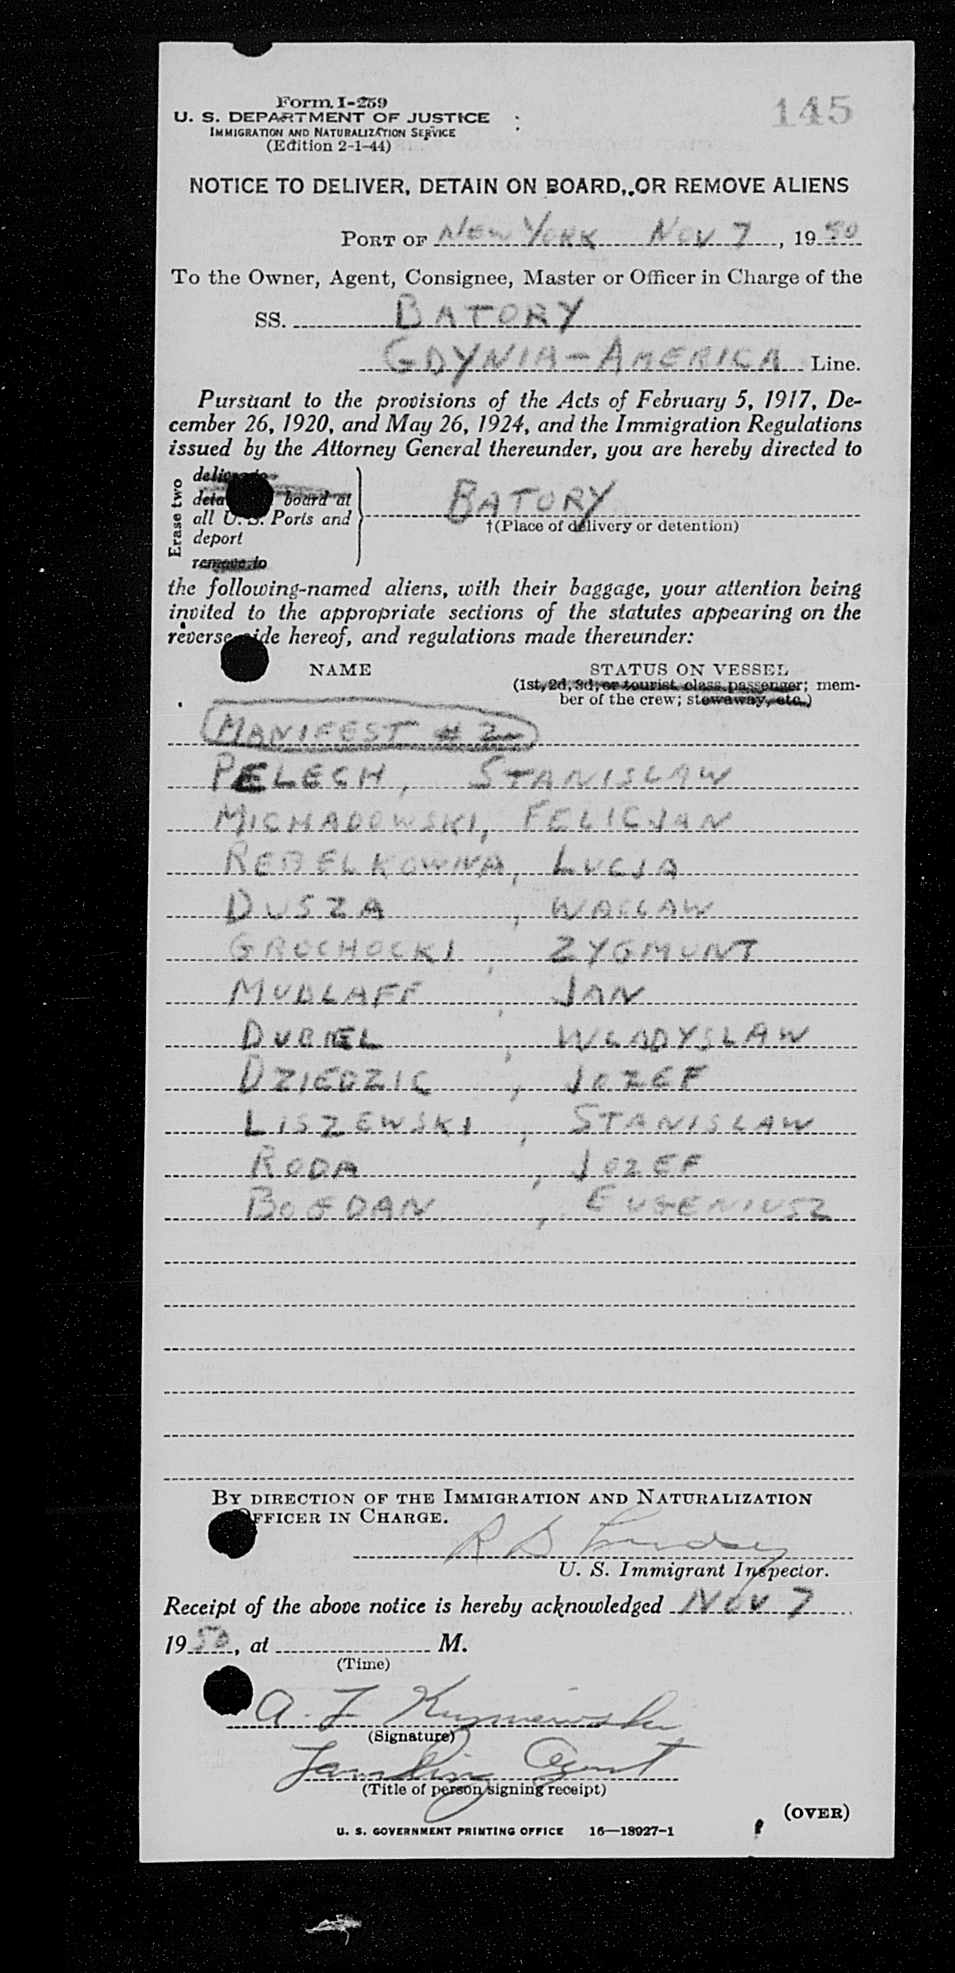 Form I-259
145
U. S. DEPARTMENT OF JUSTICE
IMMIGRATION AND NATURALIZATION SERVICE
(Edition 2-1-44)
NOTICE TO DELIVER, DETAIN ON BOARD, OR REMOVE ALIENS
PORT OF NEW YORK NOV 7, 1950
To the Owner, Agent, Consignee, Master or Officer in Charge of the
SS. BATORY
GDYNIA-AMERICA Line.
Pursuant to the provisions of the Acts of February 5, 1917, De-
cember 26, 1920, and May 26, 1924, and the Immigration Regulations
issued by the Attorney General thereunder, you are hereby directed to
Erase two
deliver to
board at
all U. S. Ports and
deport
remove to
BATORY
†(Place of delivery or detention)
the following-named aliens, with their baggage, your attention being
invited to the appropriate sections of the statutes appearing on the
reverse side hereof, and regulations made thereunder:
NAME STATUS ON VESSEL
(1st, 2d, 3d, or tourist class passenger; mem-
ber of the crew; stowaway, etc.)
MANIFEST # 2
PELECH, STANISLAW
MICHADOWSKI, FELICJAN
REBELKOWNA, LUCJA
DUSZA, WACLAW
GROCHOCKI, ZYGMUNT
MUDLAFF, JAN
DUBIEL, WLADYSLAW
DZIEDZIC, JOZEF
LISZEWSKI, STANISLAW
RODA, JOZEF
BOGDAN, EUGENIUSZ
BY DIRECTION OF THE IMMIGRATION AND NATURALIZATION
OFFICER IN CHARGE.
R S
U. S. Immigrant Inspector.
Receipt of the above notice is hereby acknowledged NOV 7
1950, at M.
(Time)
A.
(Signature)
Landing Agent
(Title of person signing receipt)
(OVER)
U. S. GOVERNMENT PRINTING OFFICE 16—18927-1